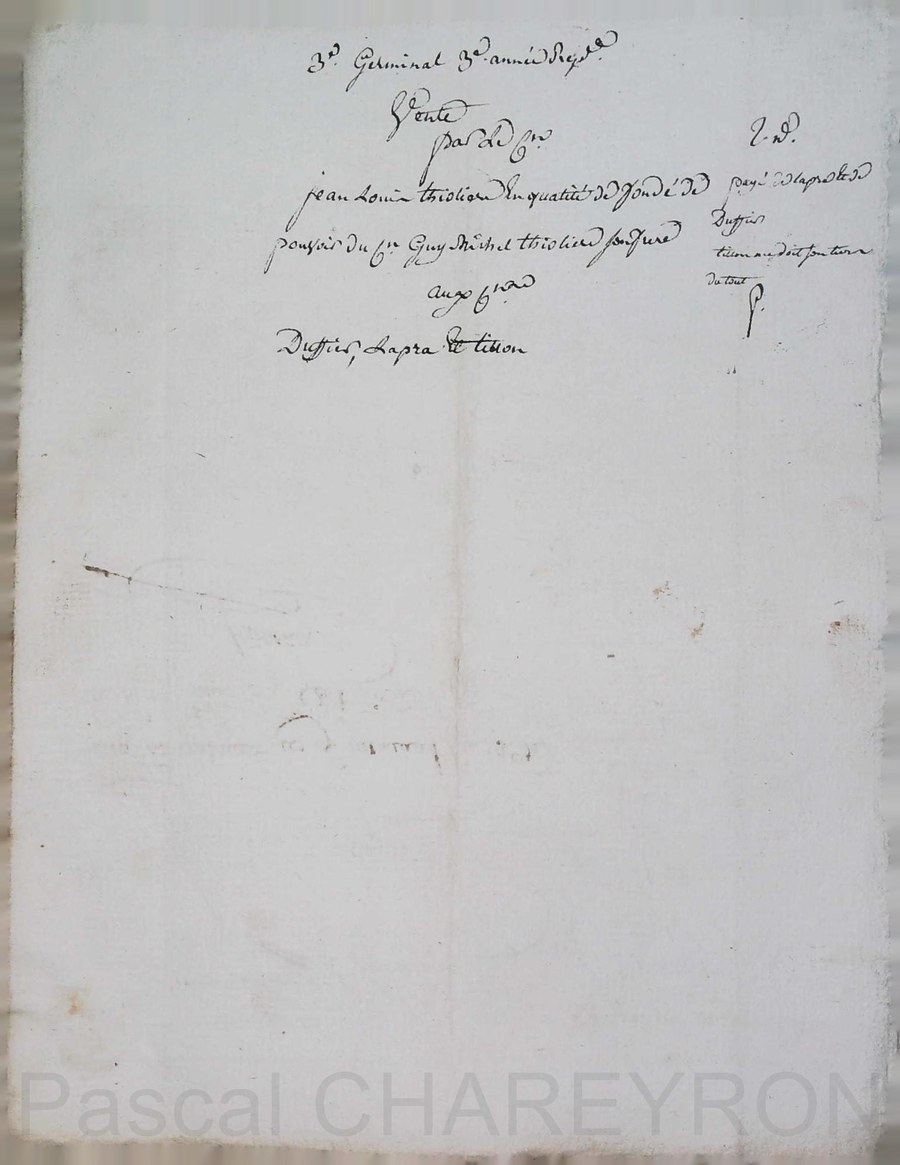 3e. Germinal 3e. année Reple.
Vente
par Le Cen
jean Louis thioliere En qualité de fondé de
pouvoir du Cen Guy Michel thioliere son frere
aux Cens
Duffier, Lapra Et tillon
2. nd.
payé de lapra et de
Duffier
tillon me doit son tiers
du tout
Pascal CHAREYRON